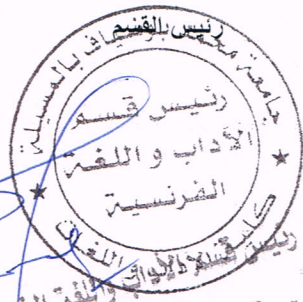 رئيس القسم
جامعة محمد بوضياف بالمسيلة
رئيس قسم
الآداب و اللغة
الفرنسية
كلية الآداب و اللغات
رئيس قسم الآداب واللغة